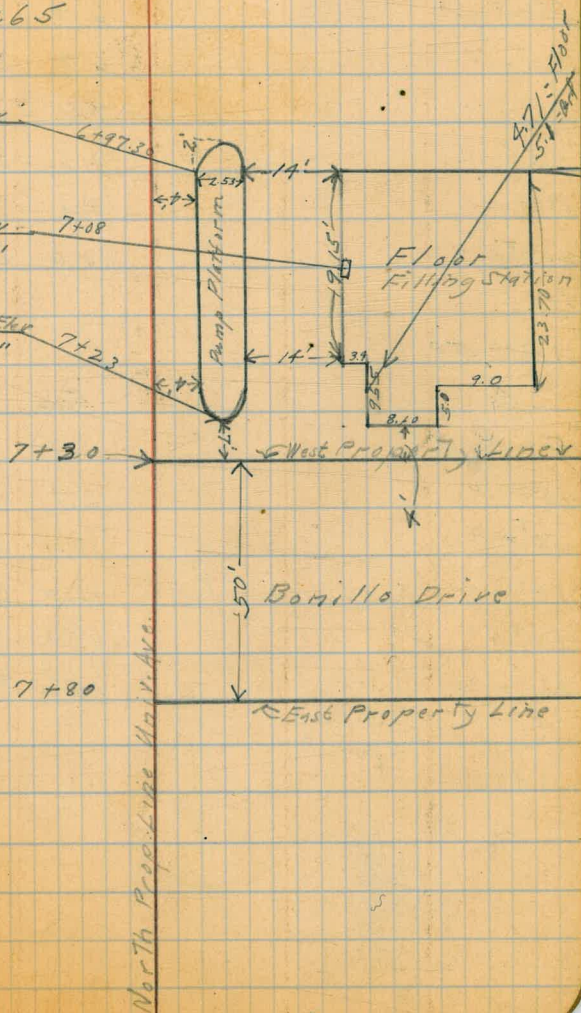 65
6+97.30
2'
2.53
14'
4'
4.71 = Floor
7+08
Pump Platform
19.15'
Floor
Filling Station
23.70
7+23
4'
14'
3.9
9.0
5.0
8.10
7+30
West Property Line
50'
Bonillo Drive
7+80
East Property Line
North Prop. Line Univ. Ave.